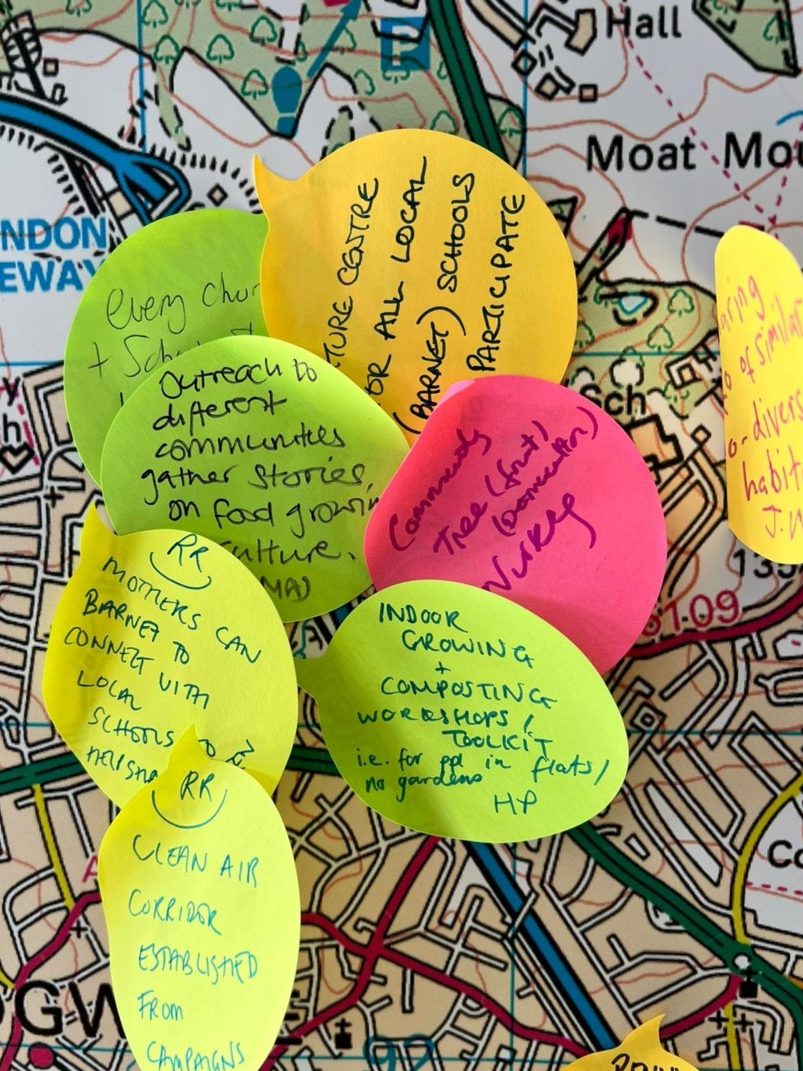 Hall
Moat Mou
NDON
EWAY
TURE CENTRE
OR ALL LOCAL
(BARNET) SCHOOLS
PARTICIPATE
every chur
+ Scho
Outreach to
different
communities
gather stories
on food growin
culture.
MA)
Sch
Community
Tree (fruit)
Nursery
aring
of similar
o-divers
habit
J.
135
5109
RR
MOTHERS CAN
BARNET TO
CONNECT WITH
LOCAL
SCHOOLS
INDOOR
GROWING
+
COMPOSTING
WORKSHOPS /
TOOLKIT
i.e. for ppl in flats/
no gardens
HP
RR
CLEAN AIR
CORRIDOR
ESTABLISHED
FROM
CAMPAIGNS
Co
OGW